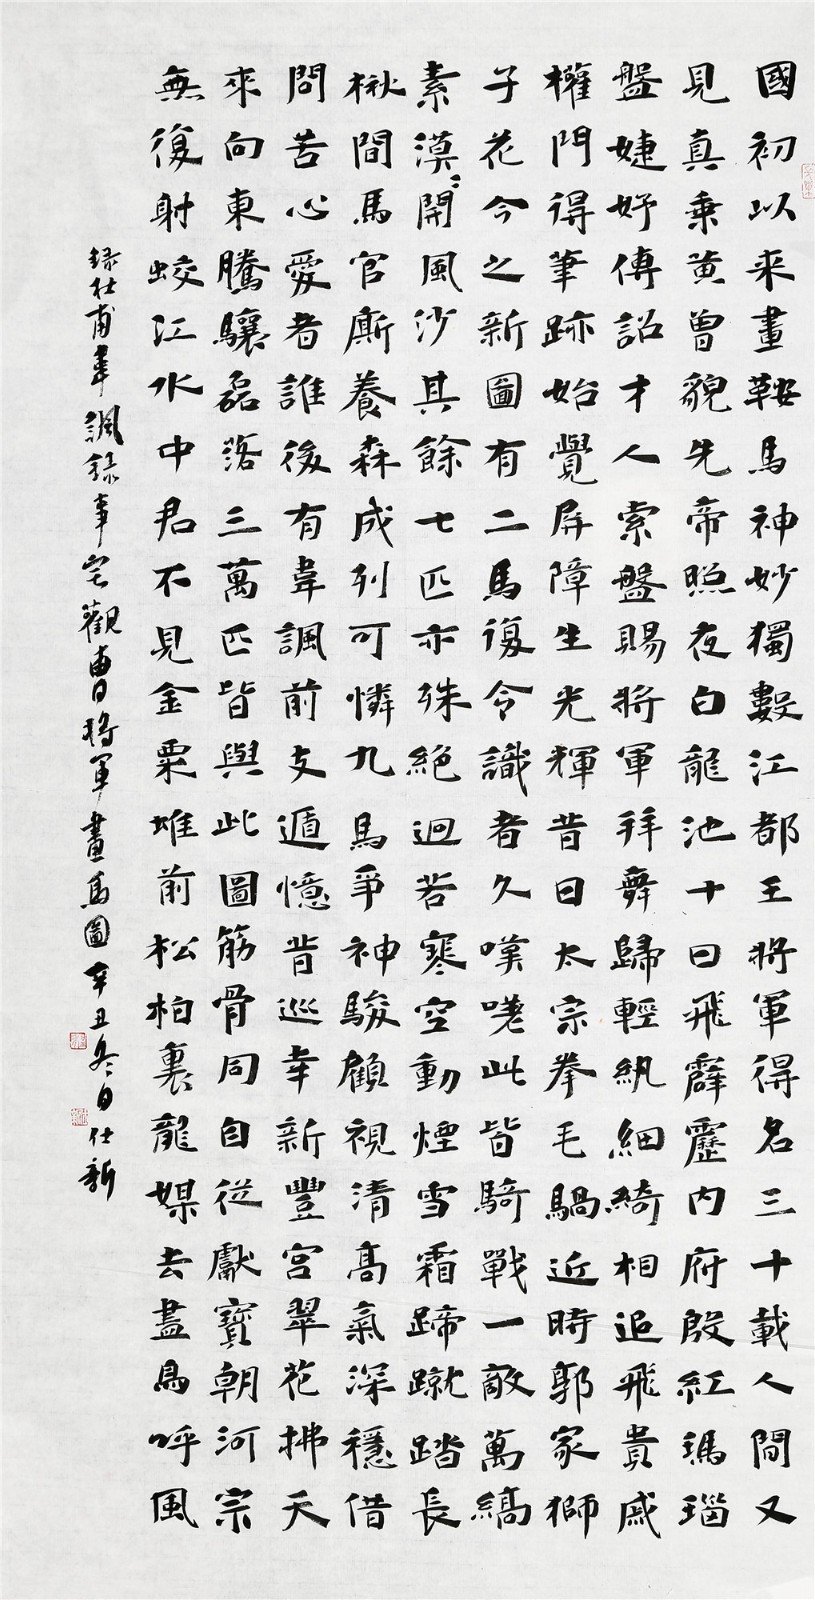 國初以来畫鞍馬神妙獨數江都王將軍得名三十載人間又
見真乗黄曽貌先帝照夜白龍池十日飛霹靂内府殷紅瑪瑙
盤婕妤傳詔才人索盤賜將軍拜舞歸輕紈細綺相追飛貴戚
權門得筆跡始覺屏障生光輝昔日太宗拳毛騧近時郭家獅
子花今之新圖有二馬復令識者久嘆嗟此皆騎戰一敵萬縞
素漠開風沙其餘七匹亦殊絕迥若寒空動煙雪霜蹄蹴踏長
楸間馬官廝養森成列可憐九馬爭神駿顧視清高氣深穩借
問苦心愛者誰後有韋諷前支遁憶昔巡幸新豐宮翠花拂天
來向東騰驤磊落三萬匹皆與此圖筋骨同自從獻寶朝河宗
無復射蛟江水中君不見金粟堆前松柏裏龍媒去盡鳥呼風
録杜甫韋諷録事宅觀曹將軍畫馬圖辛丑冬日仕新